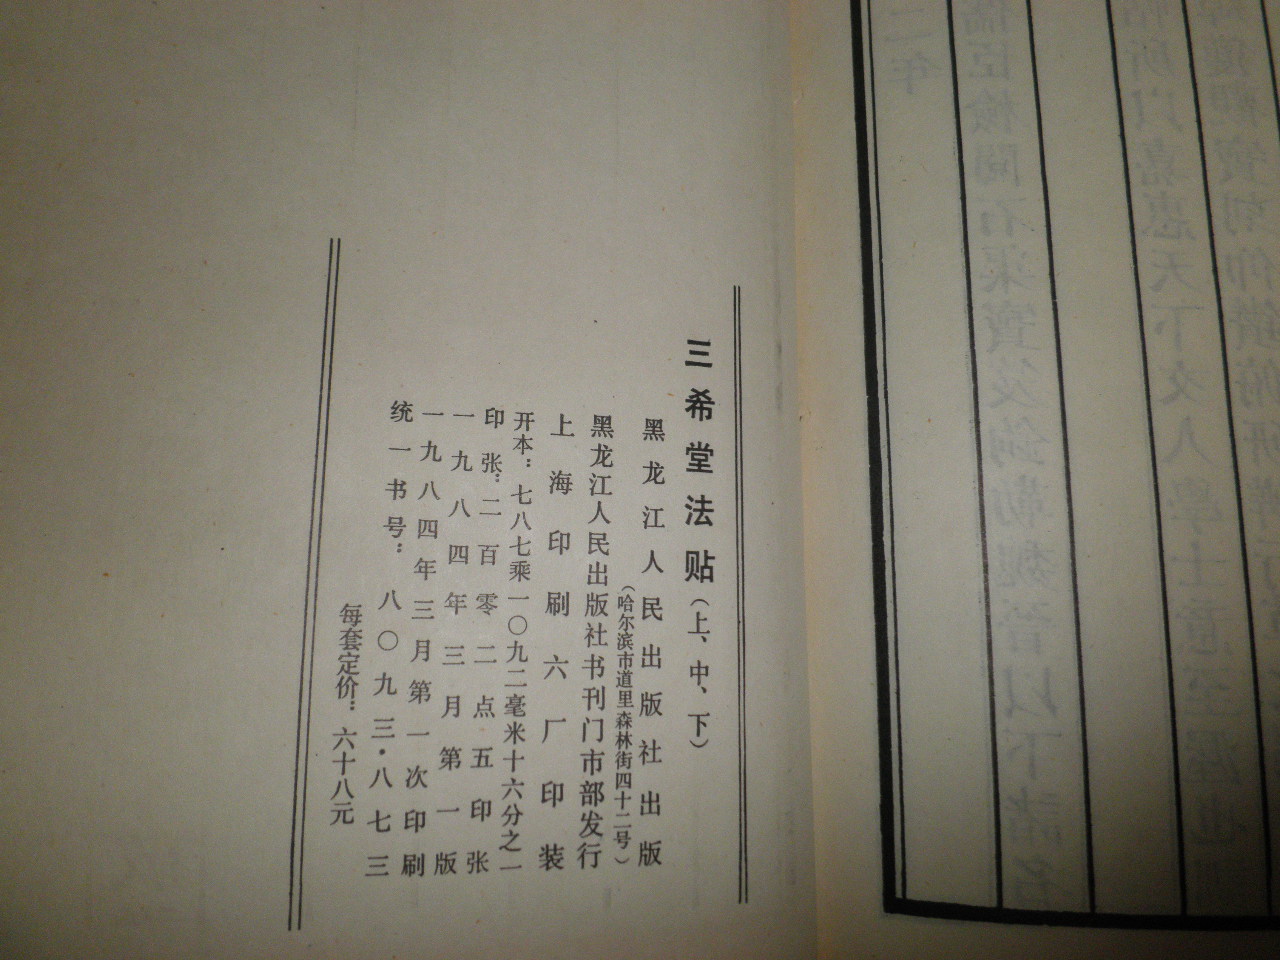 三希堂法贴（上、中、下）
黑龙江人民出版社出版
（哈尔滨市道里森林街四十二号）
黑龙江人民出版社书刊门市部发行
上海印刷六厂印装
开本：七八七乘一〇九二毫米十六分之一
印张：二百零二点五印张
一九八四年三月第一版
一九八四年三月第一次印刷
统一书号：八〇九三·八七三
每套定价：六十八元